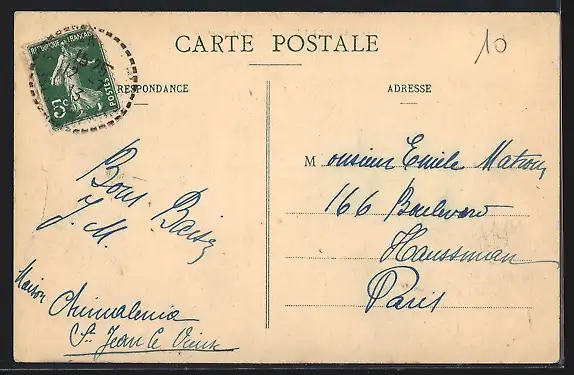 10
CARTE POSTALE
REPUBLIQUE FRANCAISE
POSTES
5c
RESPONDANCE
ADRESSE
Bons Baisers
J. M.
Maison
St Jean le Vieux
Monsieur Emile
166 Boulevard
Haussman
Paris